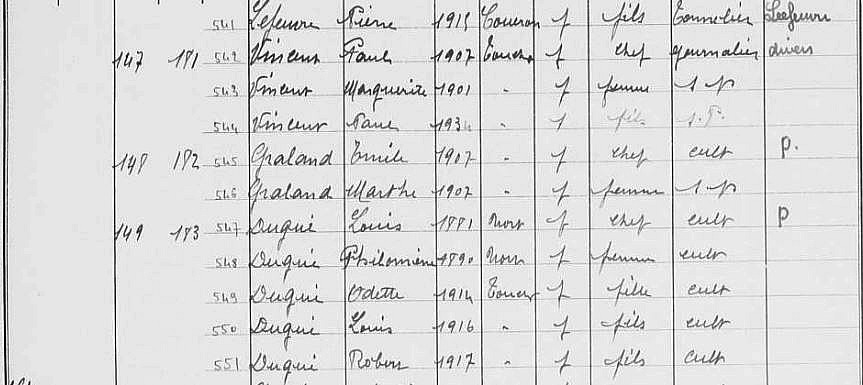 541 Lefeuvre Pierre 1915 Coueron f fils Tonnelier Lefeuvre
147 181 542 Vincent Paul 1907 f chef journalier divers
543 Vincent Marguerite 1901 " f femme s p
544 Vincent Paul 1934 " f fils s.p.
148 182 545 Graland Emile 1907 " f chef cult p.
546 Graland Marthe 1907 " f femme s p
149 183 547 Duqué Louis 1881 f chef cult p
548 Duqué Philomène 1890 f femme cult
549 Duqué Odette 1914 f fille cult
550 Duqué Louis 1916 " f fils cult
551 Duqué Robert 1917 " f fils cult